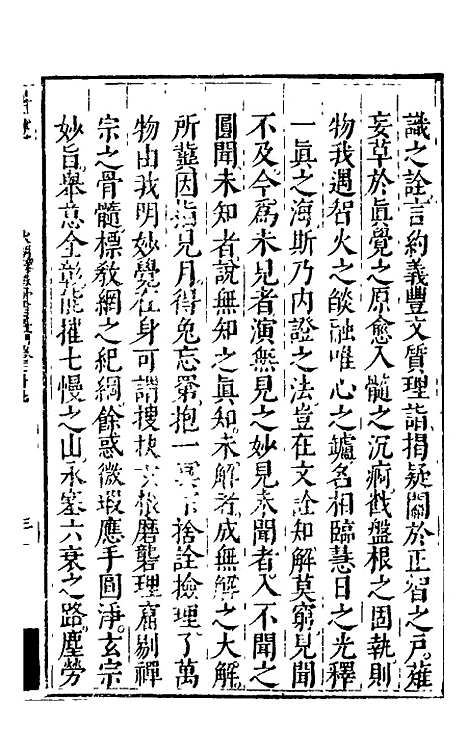 識之詮言約義豐文質理詣揭疑關於正智之戶薙
妄草於眞覺之原愈入髓之沉痾截盤根之固執則
物我遇智火之燄融唯心之鑪名相臨慧日之光釋
一眞之海斯乃內證之法豈在文詮知解莫窮見聞
不及今爲未見者演無見之妙見未聞者入不聞之
圓聞未知者說無知之眞知未解者成無解之大解
所冀因指見月得兔忘罤抱一冥宗捨詮撿理了萬
物由我明妙覺在身可謂搜抉玄根磨礱理窟剔禪
宗之骨髓標敎網之紀綱餘惑微瑕應手圓淨玄宗
妙旨舉意全彰能摧七慢之山永塞六衰之路塵勞
三